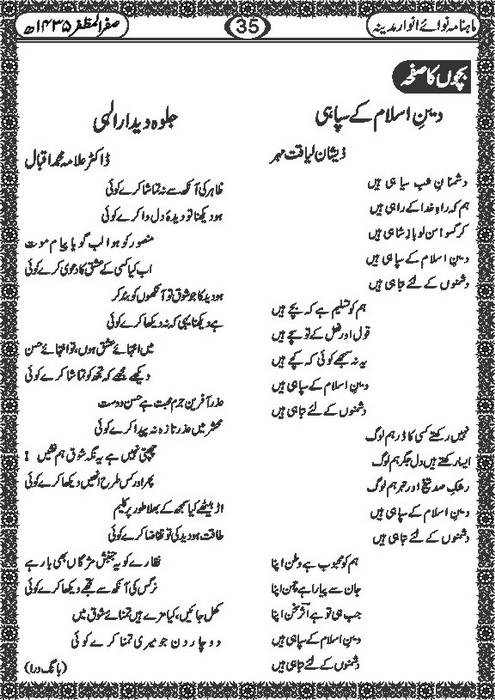 ماہنامہ نوائے انوار مدینہ
35
صفر المظفر ۱۴۳۵ھ
بچوں کا صفحہ
دینِ اسلام کے سپاہی
ذیشان لیاقت مہر
دشمنانِ شب سیاہی ہیں
ہم کہ راہِ خدا کے راہی ہیں
کرگسو! سن لو بادشاہی ہیں
دینِ اسلام کے سپاہی ہیں
دشمنوں کے لئے تباہی ہیں
ہم کو تسلیم ہے کہ بچے ہیں
قول اور فعل کے تو سچے ہیں
یہ نہ سمجھے کوئی کہ کچے ہیں
دینِ اسلام کے سپاہی ہیں
دشمنوں کے لئے تباہی ہیں
نہیں رکھتے کسی کا ڈر ہم لوگ
ایسا رکھتے ہیں دل جگر ہم لوگ
رشکِ صد تیغ اور تبر ہم لوگ
دینِ اسلام کے سپاہی ہیں
دشمنوں کے لئے تباہی ہیں
ہم کو محبوب ہے وطن اپنا
جان سے پیارا ہے چمن اپنا
جب ہی تو ہے آخر سخن اپنا
دینِ اسلام کے سپاہی ہیں
دشمنوں کے لئے تباہی ہیں
جلوہ دیدار الٰہی
ڈاکٹر علامہ محمد اقبال
ظاہر کی آنکھ سے نہ تماشا کرے کوئی
ہو دیکھنا تو دیدۂ دل وا کرے کوئی
منصور کو ہوا لب گویا پیام موت
اب کیا کسی کے عشق کا دعویٰ کرے کوئی
ہو دید کا جو شوق تو آنکھوں کو بند کر
ہے دیکھنا یہی کہ نہ دیکھا کرے کوئی
میں انتہائے عشق ہوں، تو انتہائے حسن
دیکھے مجھے کہ تجھ کو تماشا کرے کوئی
عذر آفرین جرم محبت ہے حسن دوست
محشر میں عذر تازہ نہ پیدا کرے کوئی
چھپتی نہیں ہے یہ نگہ شوق ہم نشیں !
پھر اور کس طرح انھیں دیکھا کرے کوئی
اڑ بیٹھے کیا سمجھ کے بھلا طور پر کلیم
طاقت ہو دید کی تو تقاضا کرے کوئی
نظارے کو یہ جنبش مژگاں بھی بار ہے
نرگس کی آنکھ سے تجھے دیکھا کرے کوئی
کھل جائیں، کیا مزے ہیں تمنائے شوق میں
دو چار دن جو میری تمنا کرے کوئی
(بانگ درا)